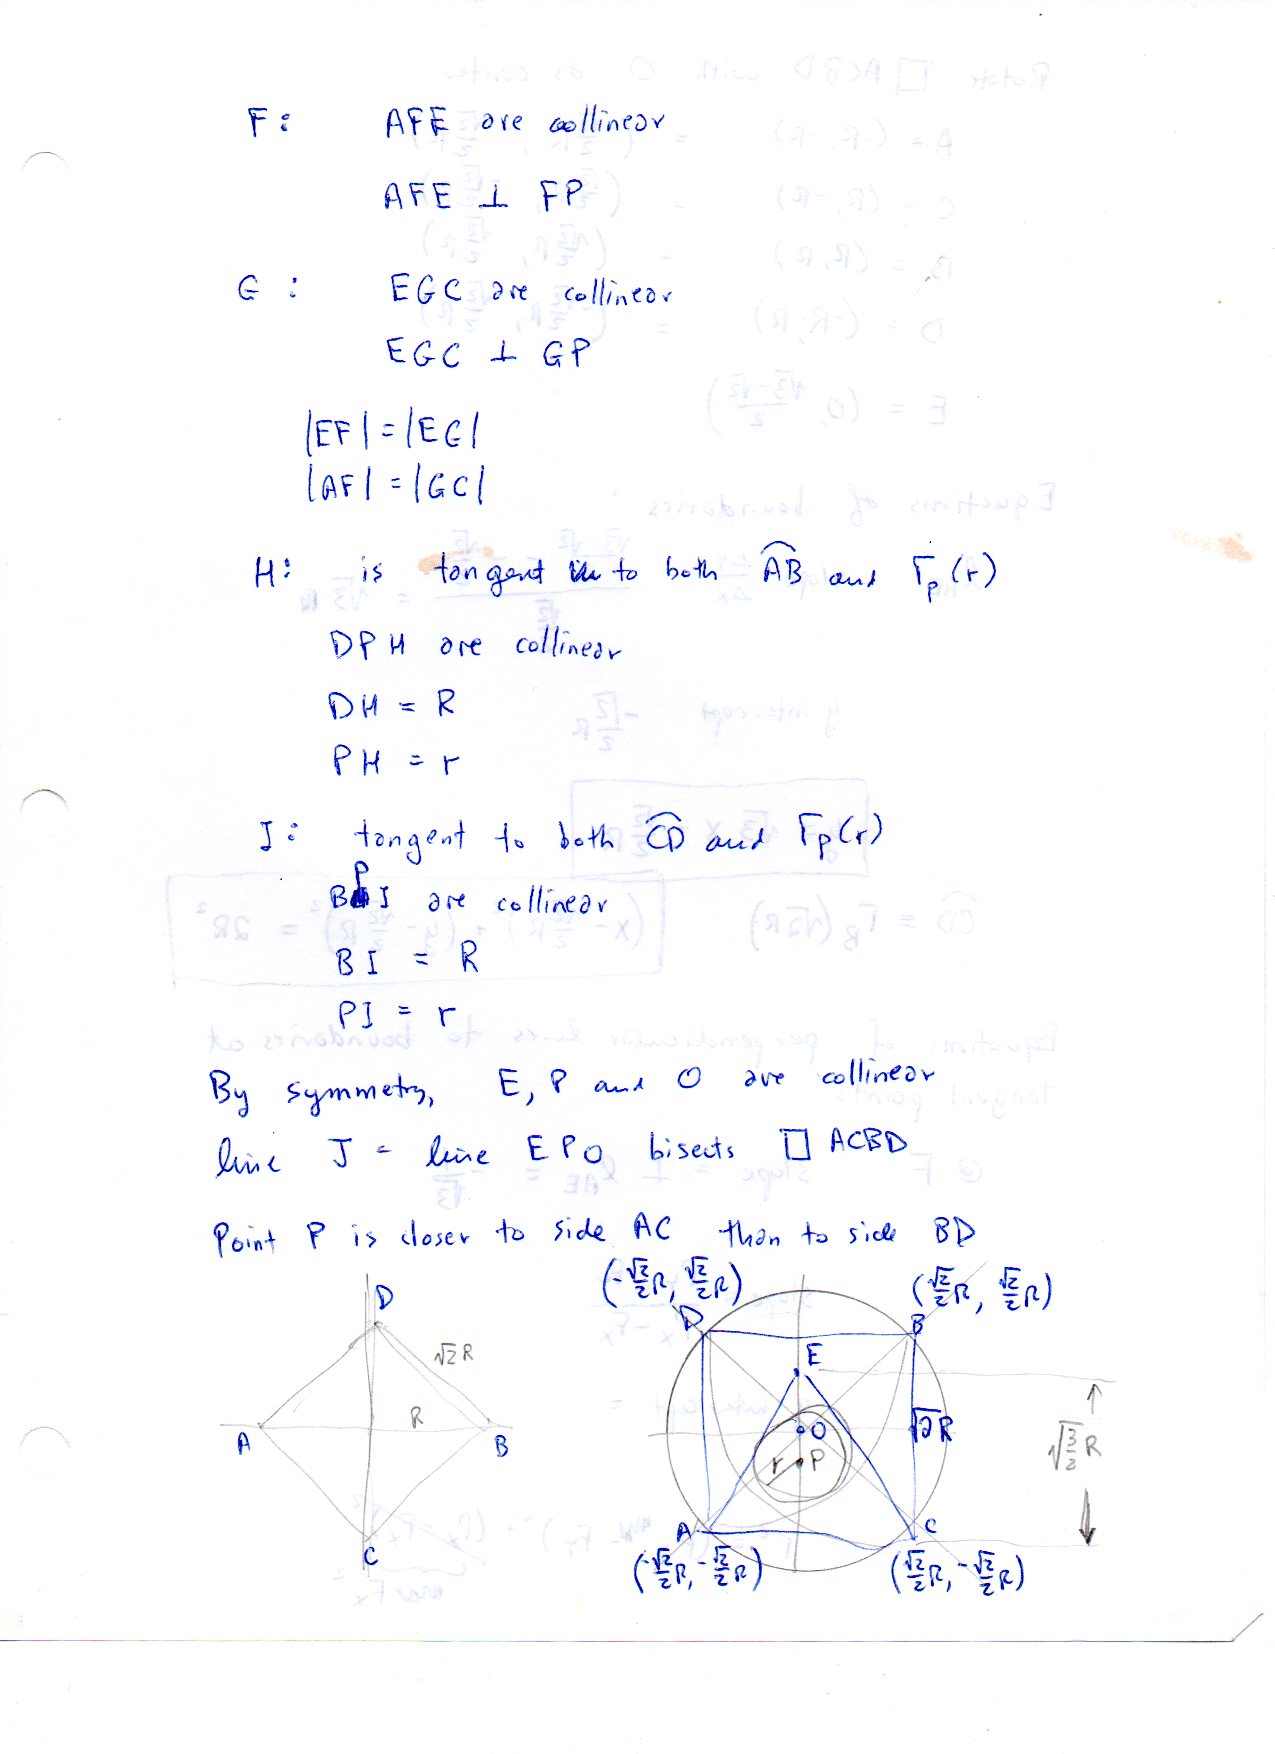 F: AFE are collinear
AFE ⊥ FP
G: EGC are collinear
EGC ⊥ GP
|EF| = |EG|
|AF| = |GC|
H: is tangent to both A͡B and Γp(r)
DPH are collinear
DH = R
PH = r
I: tangent to both C͡D and Γp(r)
BPI are collinear
BI = R
PI = r
By symmetry, E, P and O are collinear
line J = line EPO bisects □ ACBD
Point P is closer to side AC than to side BD
(-√2/2 R, √2/2 R) (√2/2 R, √2/2 R)
D D B
√2 R E
A R B O √2R √3/2 R
r P
C A C
(-√2/2 R, -√2/2 R) (√2/2 R, -√2/2 R)